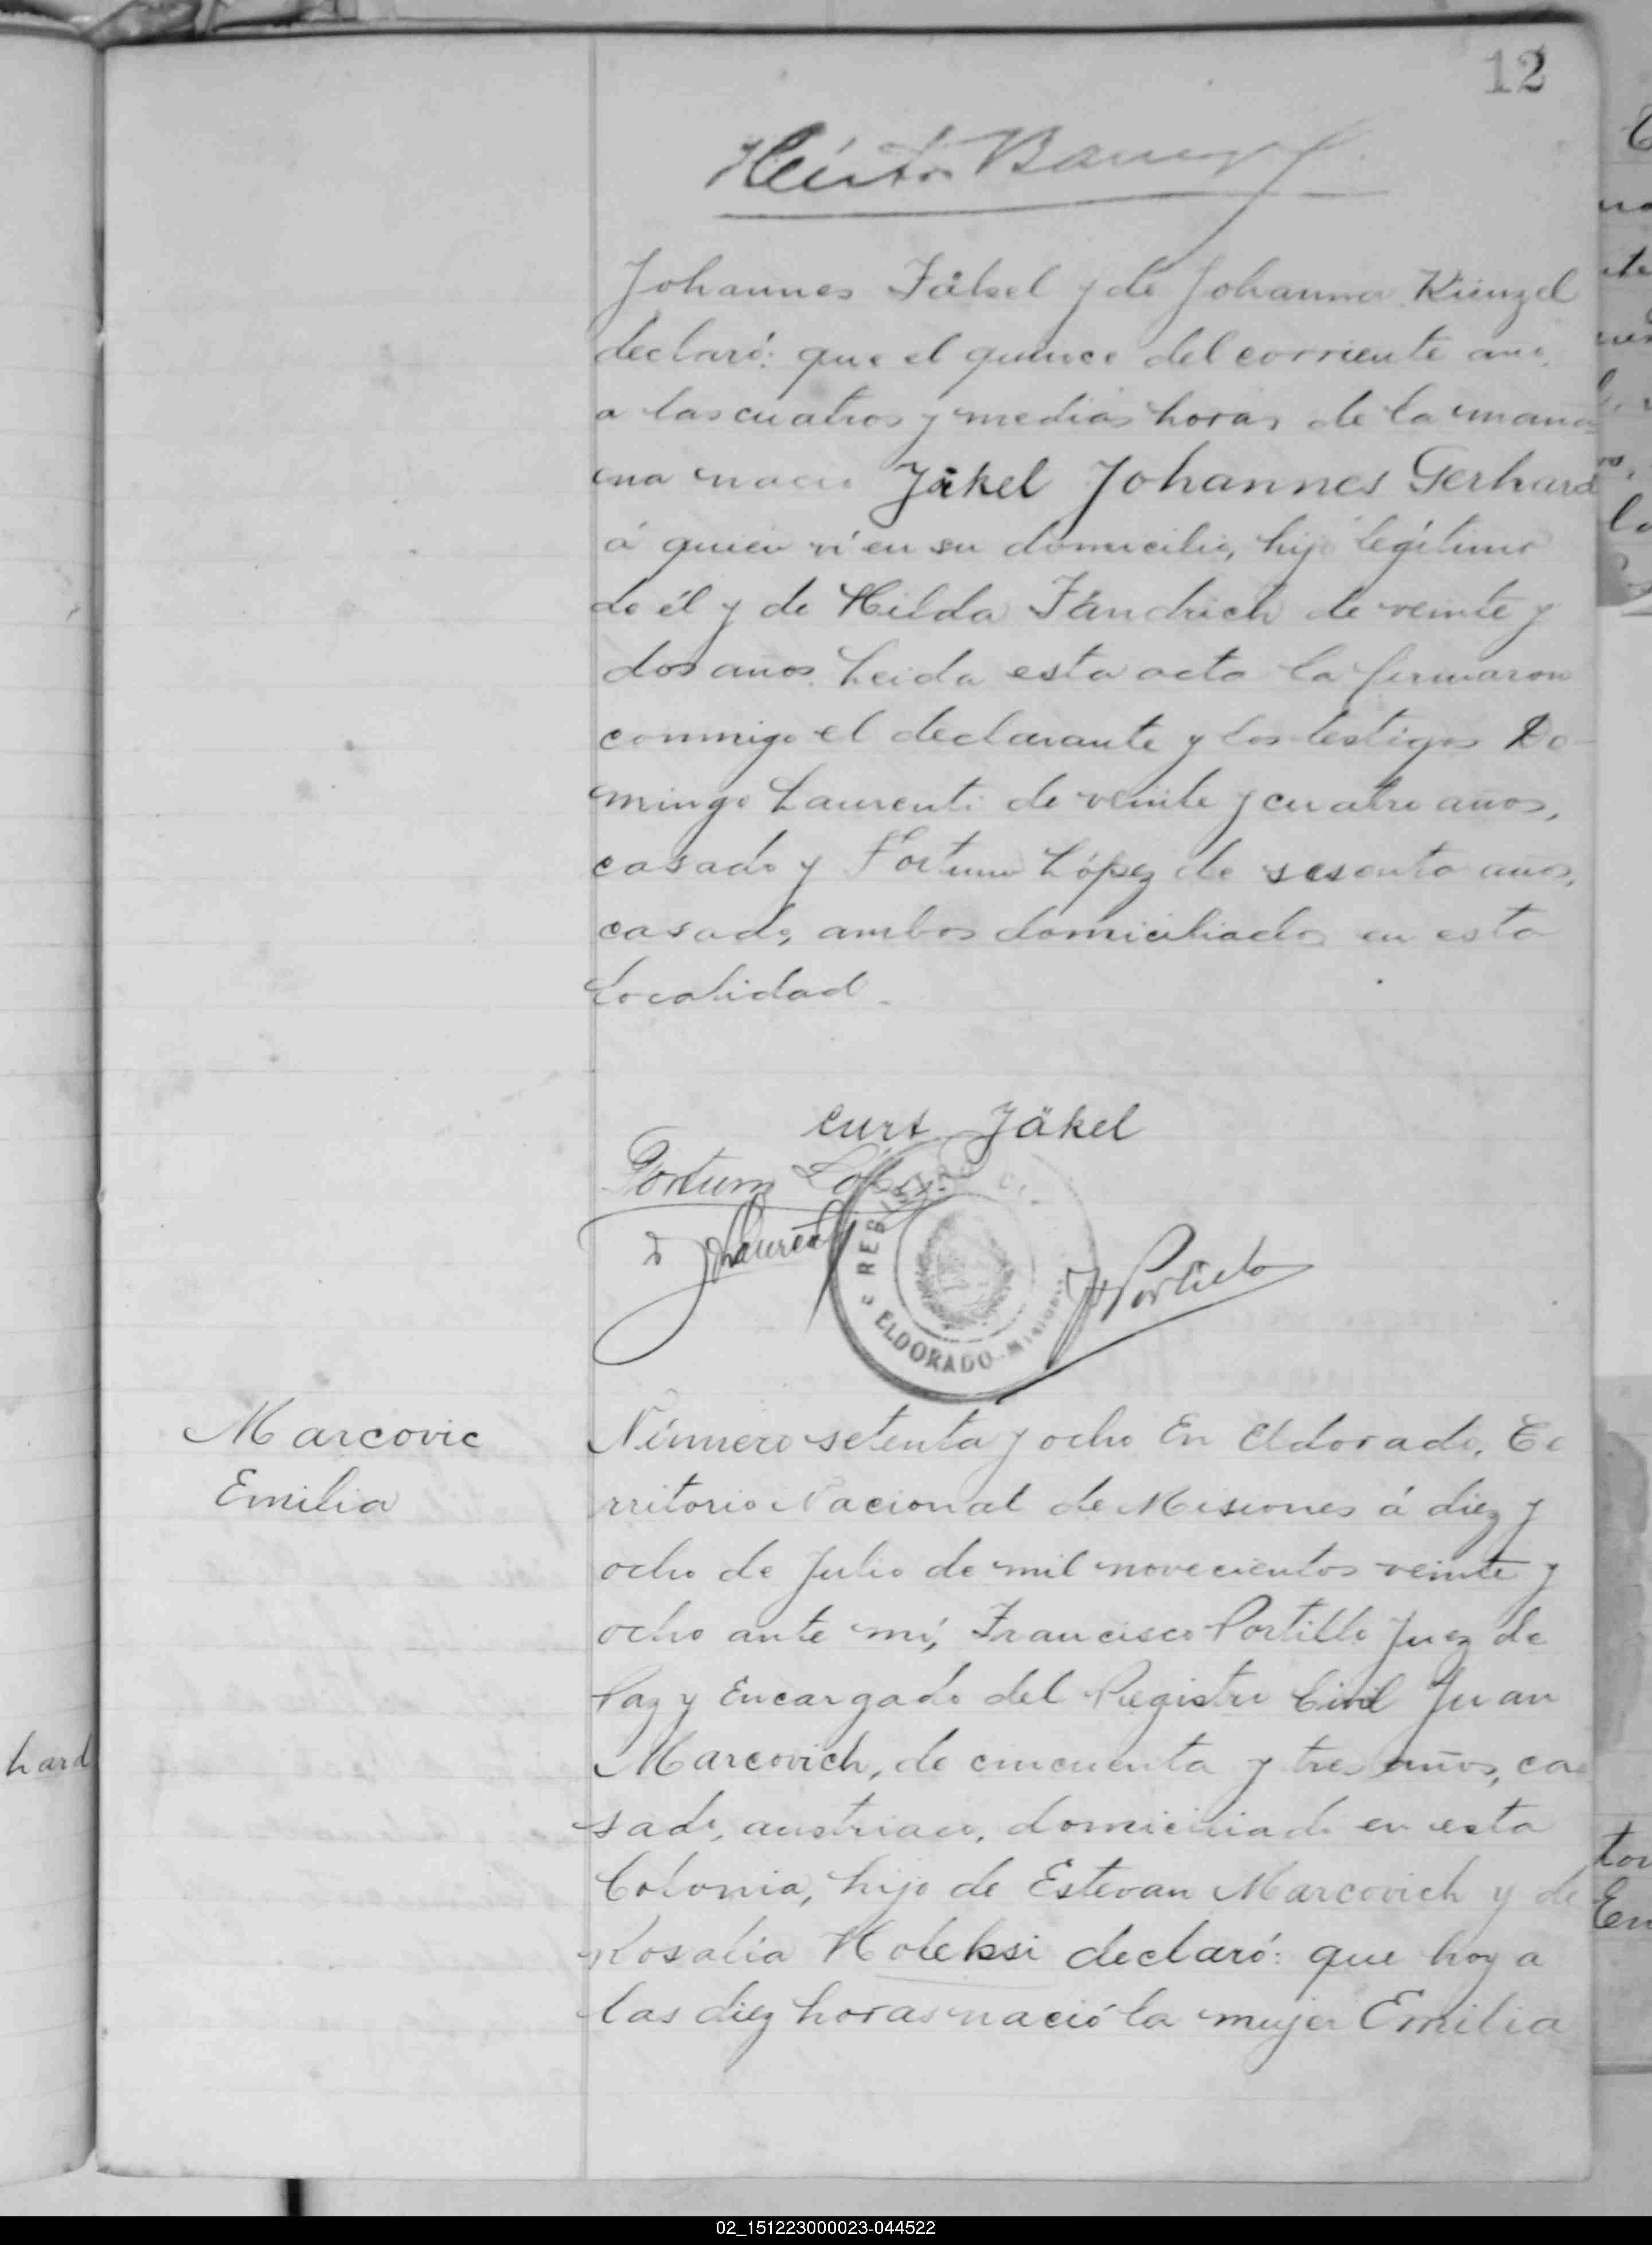 12
Johannes Jäkel y de Johanna Künzel
declaró: que el quince del corriente año,
a las cuatros y medias horas de la maña
ena nació Jäkel Johannes Gerhard
á quien ví en su domicilio, hijo legítimo
de él y de Hilda Fändrich de veinte y
dos años. Leida esta acta la firmaron
conmigo el declarante y los testigos Do-
mingo Laurenti de veinte y cuatro años,
casado y Fortun López de sesenta años,
casado, ambos domiciliados en esta
Localidad.
Curt Jäkel
Fortun López
REGISTRO CI
ELDORADO - MISIONES
F Portillo
Marcovic
Emilia
Número setenta y ocho En Eldorado, Te
rritorio Nacional de Misiones á diez y
ocho de Julio de mil novecientos veinte y
ocho ante mí, Francisco Portillo Juez de
Paz y Encargado del Registro Civil Juan
Marcovich, de cincuenta y tres años, ca
sado, austriaco, domiciliado en esta
Colonia, hijo de Estevan Marcovich y de
Rosalía Koleksi declaró: que hoy a
las diez horas nació la mujer Emilia
hard
02_151223000023-044522